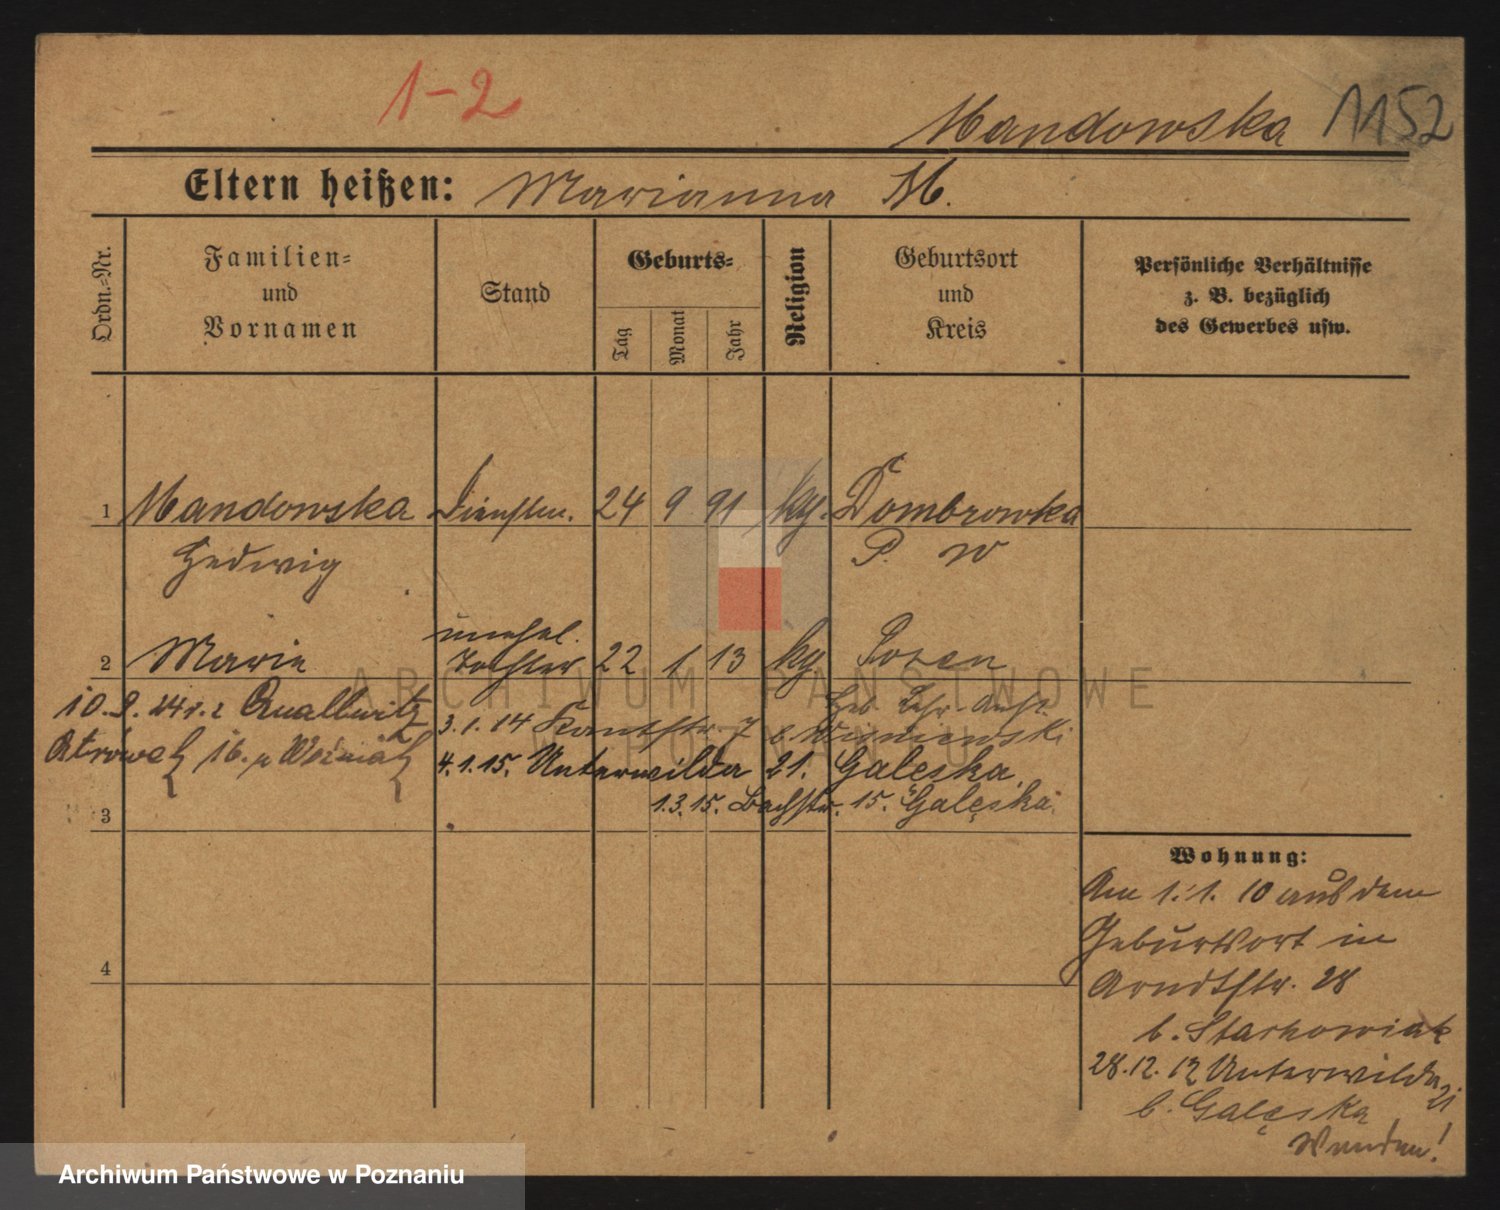 1-2
Mandowska 1152
Eltern heißen: Marianna M.
Ordn.-Nr.
Familien-
und
Vornamen
Stand
Geburts-
Tag
Monat
Jahr
Religion
Geburtsort
und
Kreis
Persönliche Verhältnisse
z. B. bezüglich
des Gewerbes usw.
1 Mandowska Dienstm. 24 9 91 kg. Dombrowka
Hedwig P. W
unehel.
2 Marie Tochter 22 1 13 kg Posen
ARCHIWUM PAŃSTWOWE
W POZNANIU
10. 9. 24 v. z
3.1.14 Kantstr. 7 b. Wisniewski
4.1.15. Unterwilda 21. Galęska
1.3.15. Bachstr. 15. Galęska
3
Wohnung:
Am 1.1.10 aus dem
Geburtsort in
Arndtstr. 28
4
b. Stachowiak
28.12.12 Unterwilda 21
b. Galęska
Wenden!
Archiwum Państwowe w Poznaniu